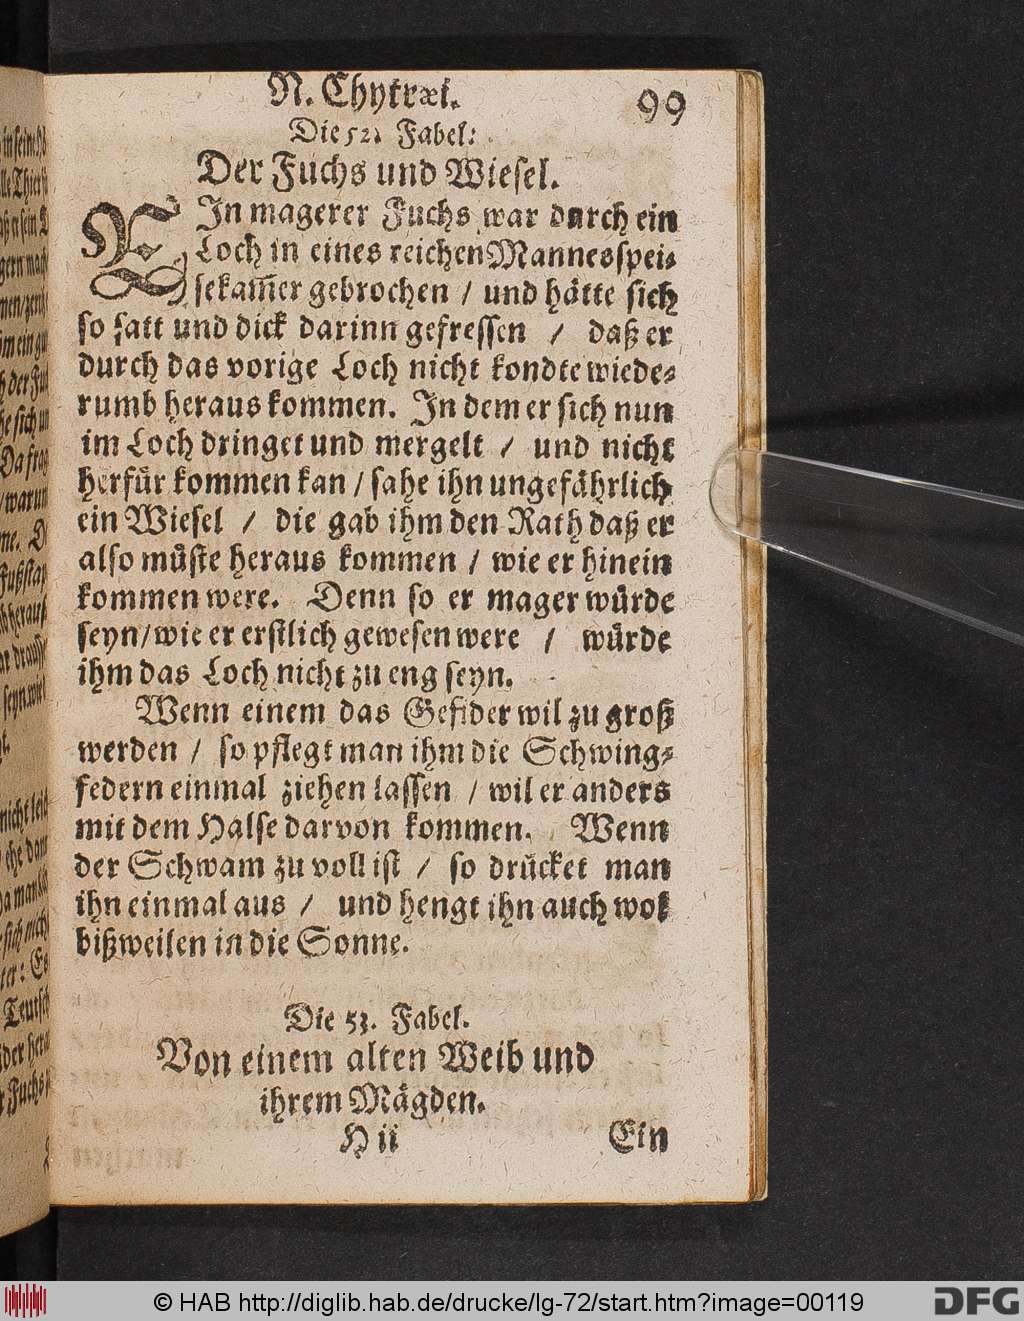 N. Chytræi.
99
Die 52. Fabel:
Der Fuchs und Wiesel.
EIn magerer Fuchs war durch ein
Loch in eines reichen Mannes spei-
sekam̄er gebrochen / und hätte sich
so satt und dick darinn gefressen / daß er
durch das vorige Loch nicht kondte wiede-
rumb heraus kommen. In dem er sich nun
im Loch dringet und mergelt / und nicht
herfür kommen kan / sahe ihn ungefährlich
ein Wiesel / die gab ihm den Rath daß er
also müste heraus kommen / wie er hinein
kommen were. Denn so er mager würde
seyn / wie er erstlich gewesen were / würde
ihm das Loch nicht zu eng seyn.
Wenn einem das Gefider wil zu groß
werden / so pflegt man ihm die Schwing-
federn einmal ziehen lassen / wil er anders
mit dem Halse darvon kommen. Wenn
der Schwam zu voll ist / so drücket man
ihn einmal aus / und hengt ihn auch wol
bißweilen in die Sonne.
Die 53. Fabel.
Von einem alten Weib und
ihrem Mägden.
H ii
Ein
© HAB http://diglib.hab.de/drucke/lg-72/start.htm?image=00119
DFG